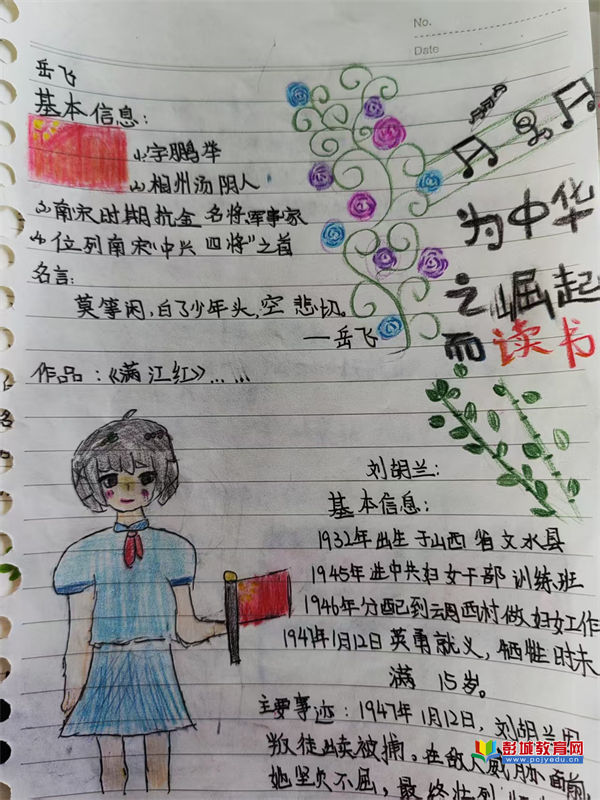 No.
Date
岳飞
基本信息:
(1)字鹏举
(2)相州汤阴人
(3)南宋时期抗金名将,军事家
(4)位列南宋“中兴四将”之首
名言:
莫等闲,白了少年头,空悲切。
—岳飞
作品:《满江红》……
为中华
之崛起
而读书
刘胡兰:
基本信息:
1932年出生于山西省文水县
1945年进中共妇女干部训练班
1946年分配到云周西村做妇女工作
1947年1月12日英勇就义,牺牲时未
满15岁。
主要事迹:1947年1月12日,刘胡兰因
叛徒出卖被捕,在敌人威胁面前,
她坚贞不屈,最终壮烈
彭城教育网
www.pcjyedu.cn